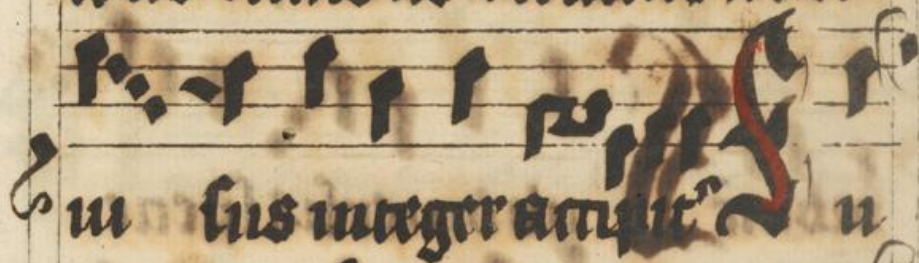 ui sus integer accipit S u